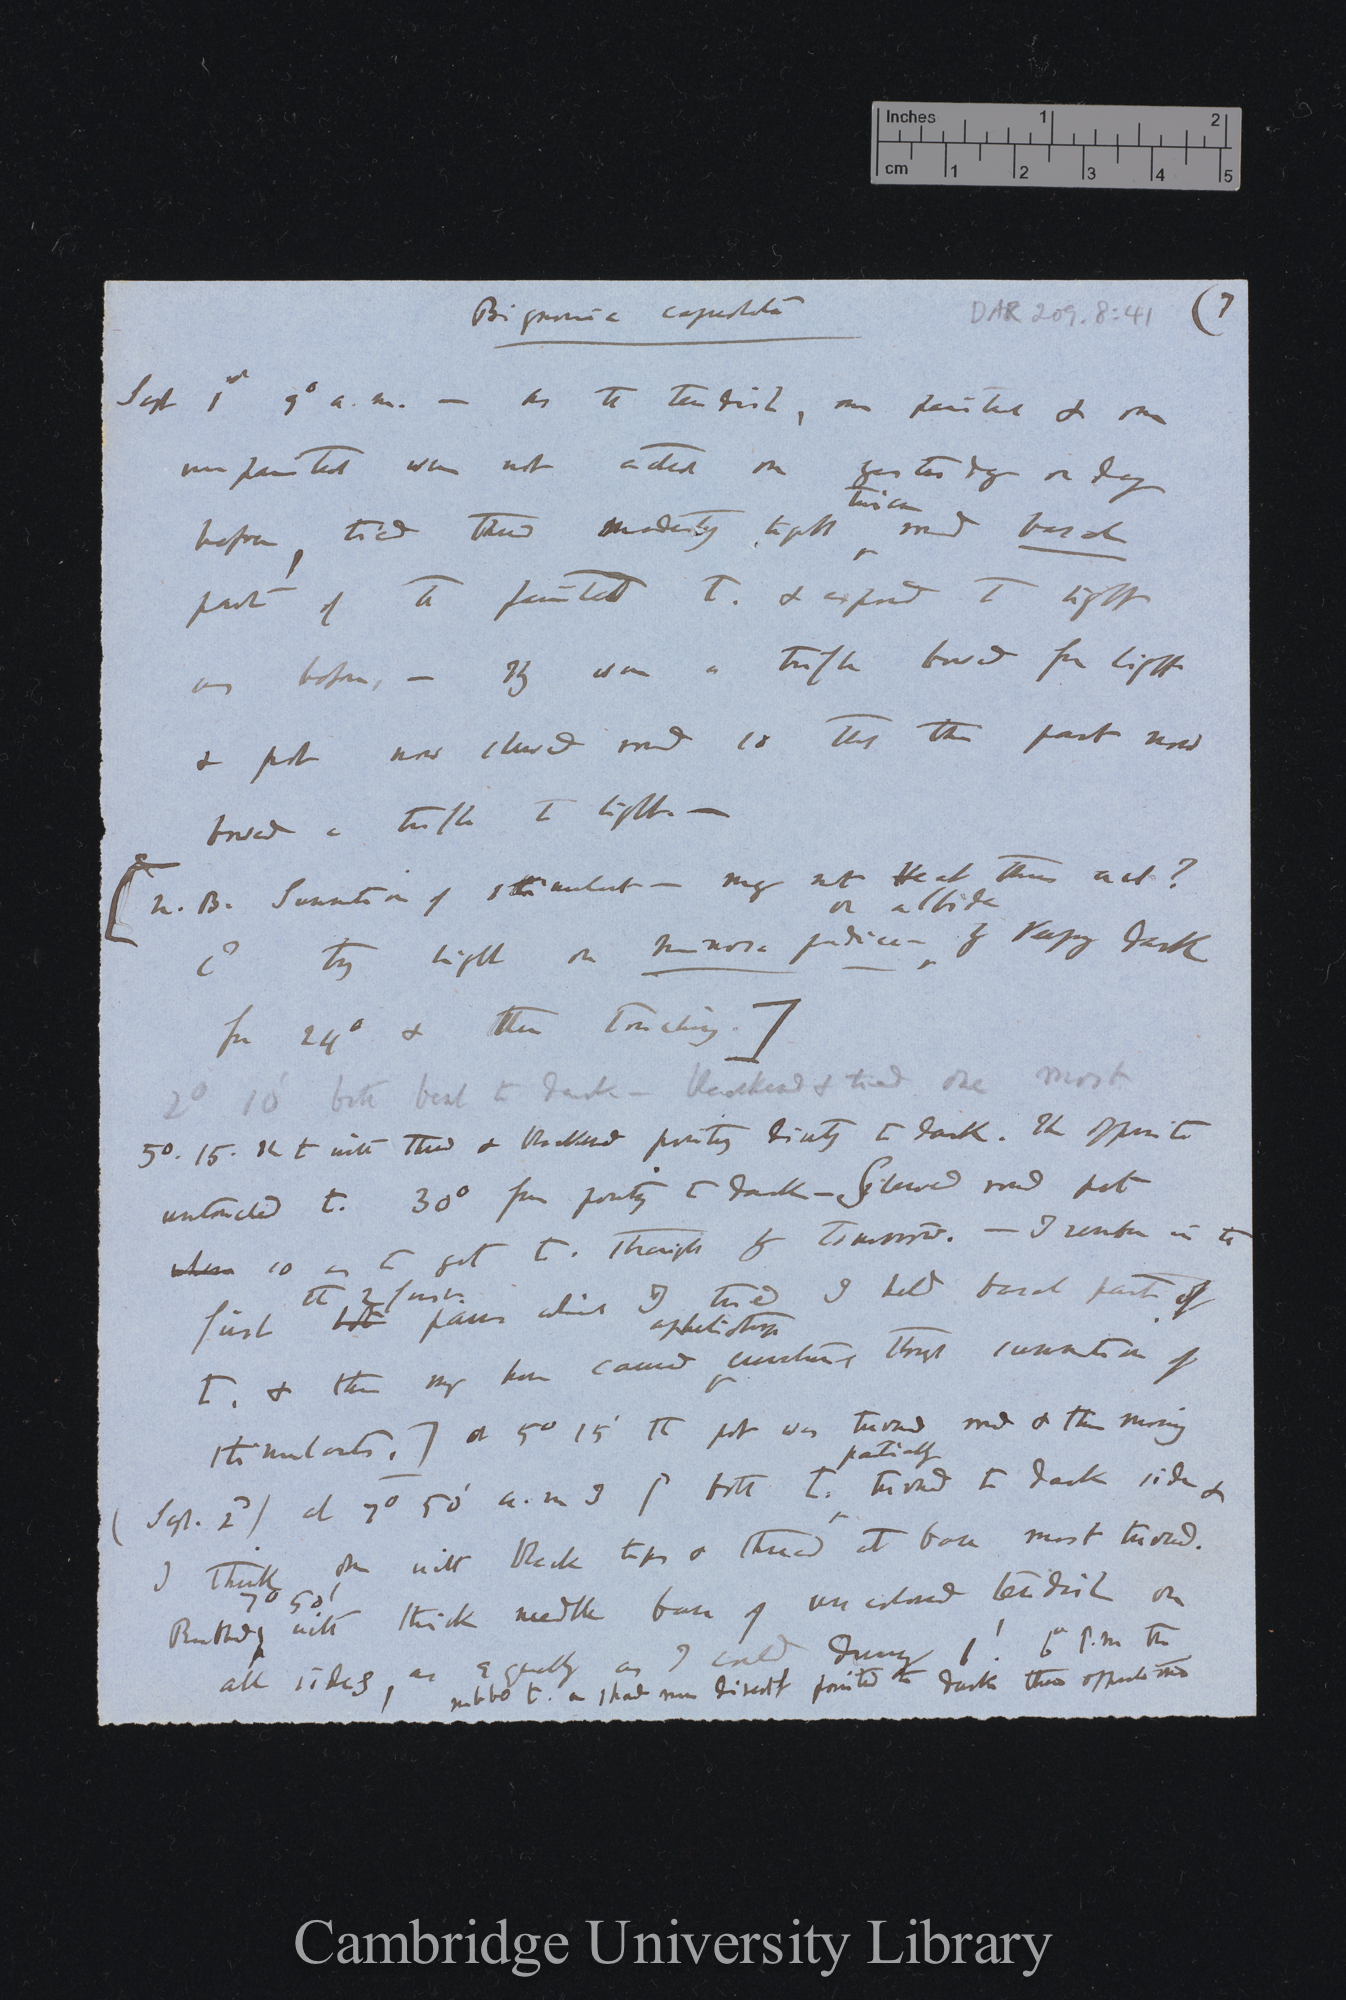 Inches 1 2
cm 1 2 3 4 5
Bignonia capreolata
DAR 209.8:41
(7
Sept 1st 9° a.m. — As the tendrils, one painted & one
unpainted were not acted on yesterday or day
before, tied thread moderately tight twice round basal
part of the painted T. & exposed to light
as before, — It was a trifle bowed from light
& pot now slewed round so that the part now
bowed a trifle to light —
[N.B. Summation of stimulant — may not Heat thus act?
try light on mimosa pudica or albida by keeping dark
for 24° & then touching.]
2° 10' both bent to dark — blackened & tied one most
5°. 15. The t with thread & blackened pointing directly to dark. The opposite
untouched t. 30° from pointing to dark — Slewed round pot
when so as to get t. straight by tomorrow. — I remember in the
first both the 2 pairs which I tried I held basal part of
T. & this may have caused apheliotropic curvature through summation of
stimulants.] at 5° 15' the pot was turned round & this morning
(Sept. 2d) at 7° 50' a.m both t. partially turned to dark side &
I think one with black tips & thread at base most turned.
Rubbed 7° 50' with thick needle base of uncolored tendril on
all sides, as equally as I could during 1'. 6° P.m the
rubbed t. a shade more directly pointed to dark than opposite one
Cambridge University Library